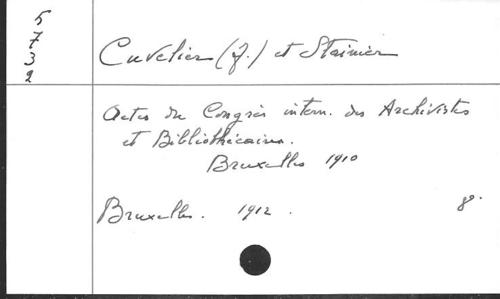 5
7
3
2
Cuvelier (J.) et Stainier
Actes du Congrès intern. des Archivistes
et Bibliothécaires.
Bruxelles 1910
Bruxelles. 1912. 8°.